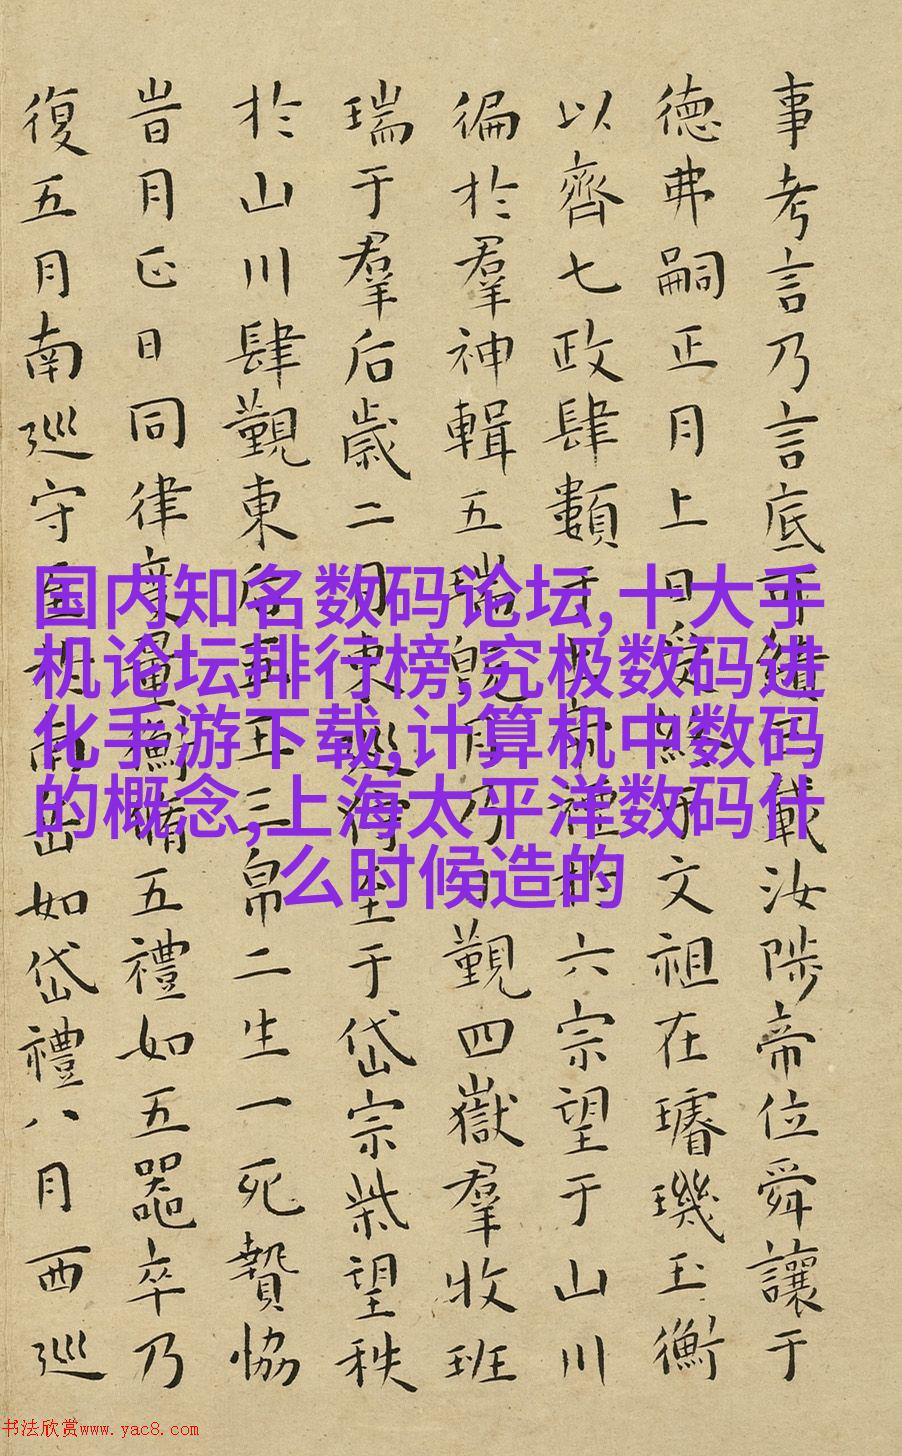 事考言乃言底可績載汝陟帝位舜讓于
德弗嗣正月上日受終于文祖在璿璣玉衡
以齊七政肆類于上帝禋於六宗望于山川
徧於羣神輯五瑞旣月乃日覲四嶽羣牧班
瑞于羣后歲二月東巡狩至于岱宗祡望秩
於山川肆覲東后五玉三帛二生一死贄協
旹月正日同律度量衡脩五禮如五器卒乃
復五月南巡守至于南岳如岱禮八月西巡
国内知名数码论坛,十大手
机论坛排行榜,究极数码进
化手游下载,计算机中数码
的概念,上海太平洋数码什
么时候造的
书法欣赏www.yac8.com